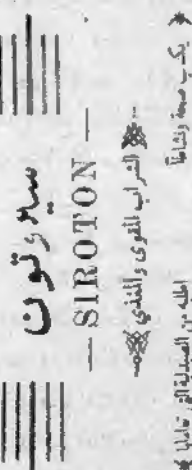 سيروتون
— SIROTON —
الشراب المقوى والمغذي
يكسب صحة ونشاطاً
اطلبه من الصيدلية التي